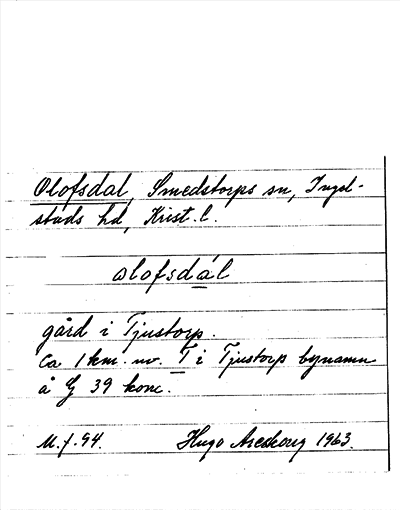 Olofsdal, Smedstorps sn, Ingel-
stads hd, Krist. l.
olofsdál
gård i Tjustorp.
Ca 1 km. nv. T i Tjustorp bynamn
å G 39 konc.
M. f. 94. Hugo Areskoug 1963.